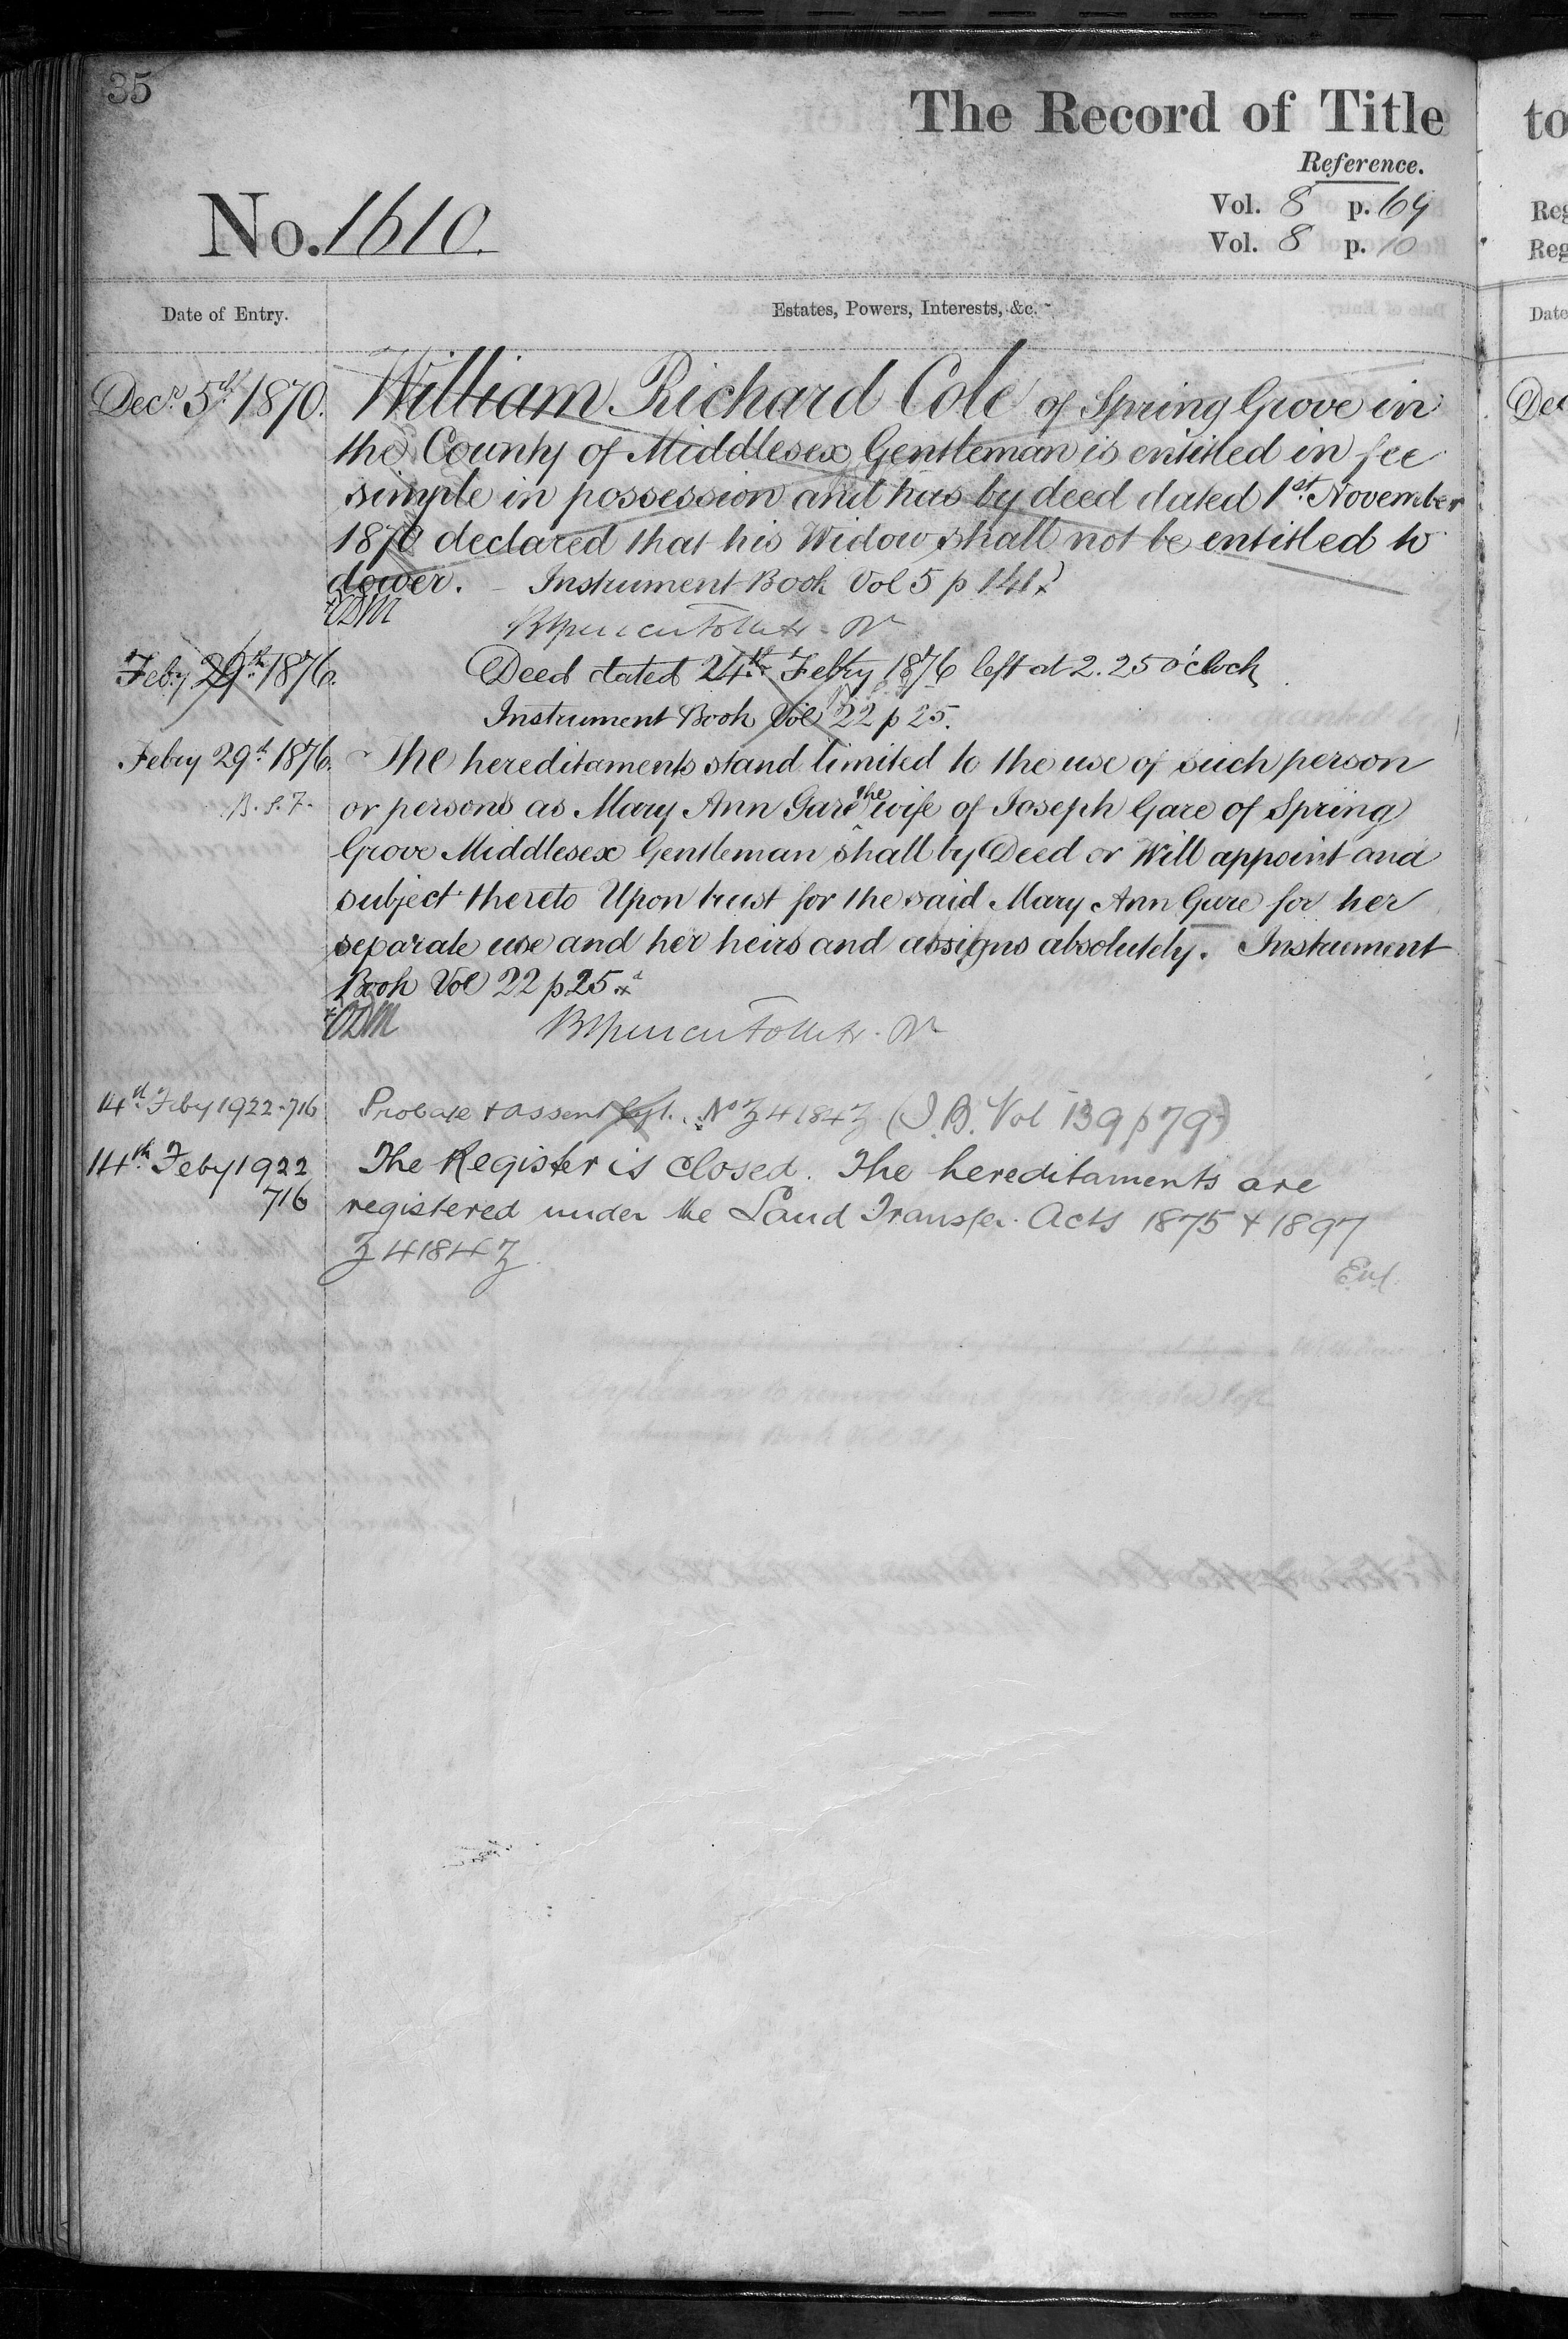 35
The Record of Title
Reference.
No. 1610.
Vol. 8 p. 69
Vol. 8 p. 10
Date of Entry.
Estates, Powers, Interests, &c.
Decr. 5th 1870. William Richard Cole of Spring Grove in
the County of Middlesex Gentleman is entitled in fee
simple in possession and has by deed dated 1st November
1870 declared that his Widow shall not be entitled to
dower. - Instrument Book Vol 5 p 141
Feby 29th 1876. Deed dated 24th Febry 1876 left at 2.25 o'clock
Instrument Book Vol 22 p 25.
Febry 29th 1876. The hereditaments stand limited to the use of such person
or persons as Mary Ann Gare the wife of Joseph Gare of Spring
Grove Middlesex Gentleman shall by Deed or Will appoint and
subject thereto Upon trust for the said Mary Ann Gare for her
separate use and her heirs and assigns absolutely. Instrument
Book Vol 22 p 25
14th Feby 1922 - 716 Probate & assent No Z 4184Z (I.B. Vol 139 p 79)
14th Feby 1922 The Register is closed. The hereditaments are
716 registered under the Land Transfer Acts 1875 & 1897
Z 4184Z
to
Reg
Reg
Date
Dec